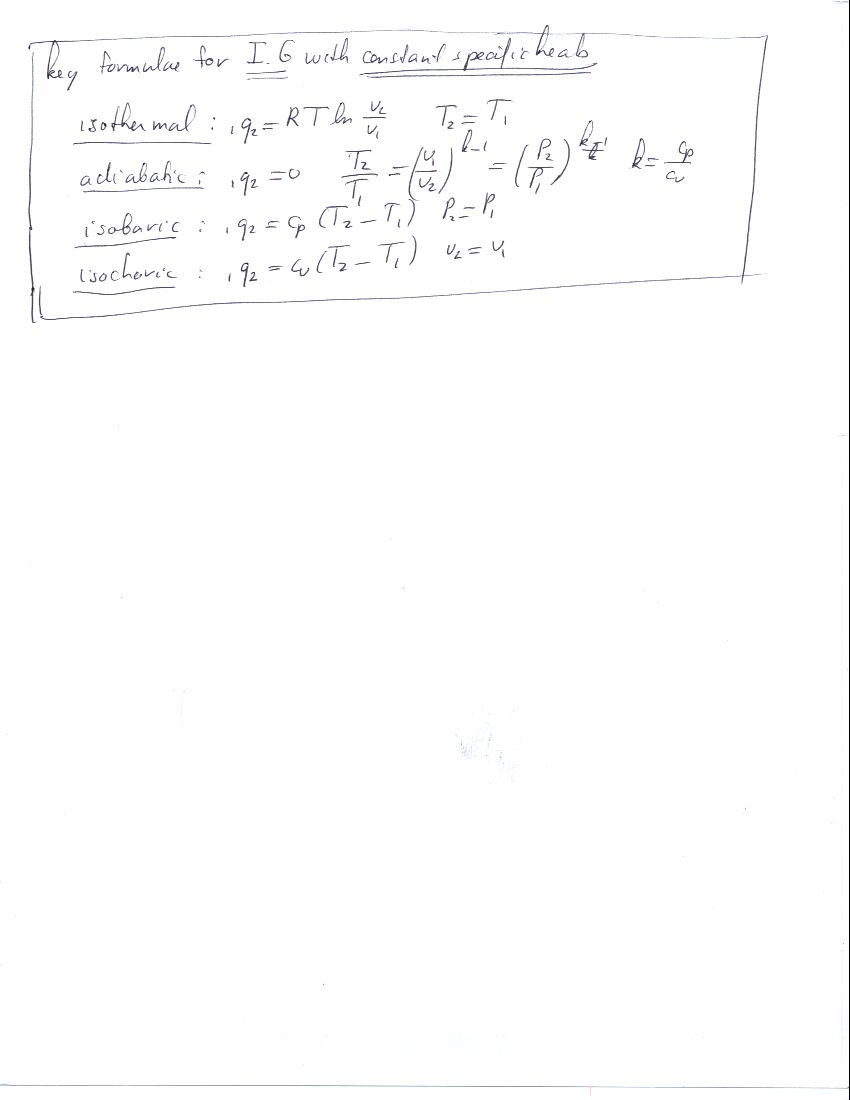 key formulae for I.G with constant specific heats
isothermal : ₁q₂ = RT ln v₂/v₁ T₂ = T₁
adiabatic : ₁q₂ = 0 T₂/T₁ = (v₁/v₂)^(k-1) = (P₂/P₁)^((k-1)/k) k = cp/cv
isobaric : ₁q₂ = cp (T₂ - T₁) P₂ = P₁
isochoric : ₁q₂ = cv (T₂ - T₁) v₂ = v₁